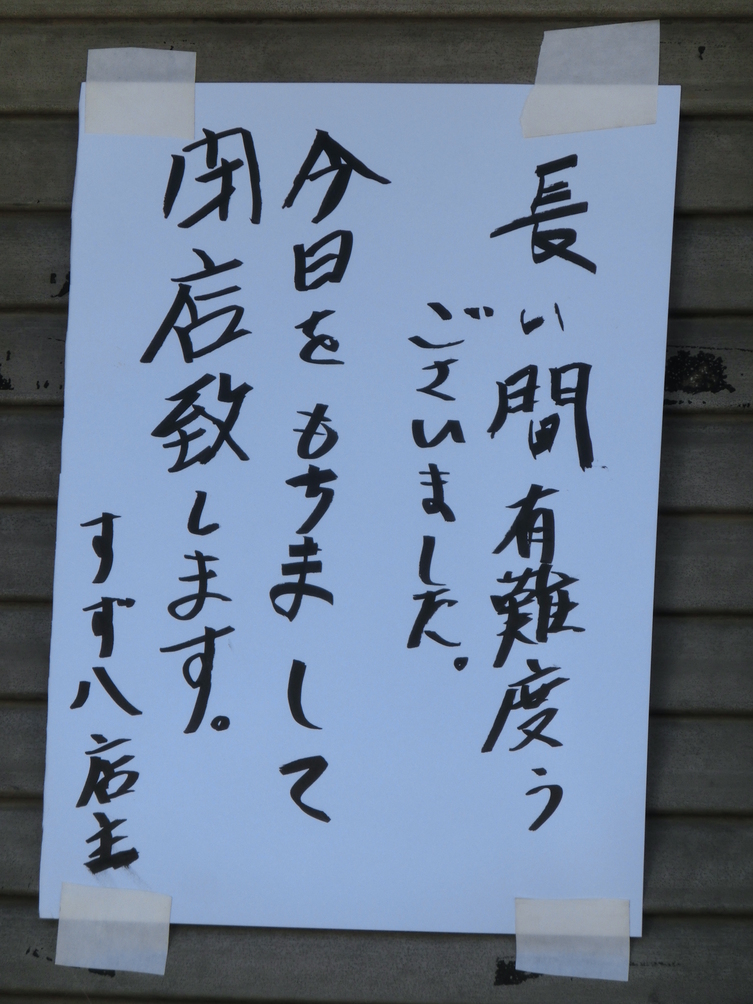 長い間有難度う
ございました。
今日をもちまして
閉店致します。
すず八店主